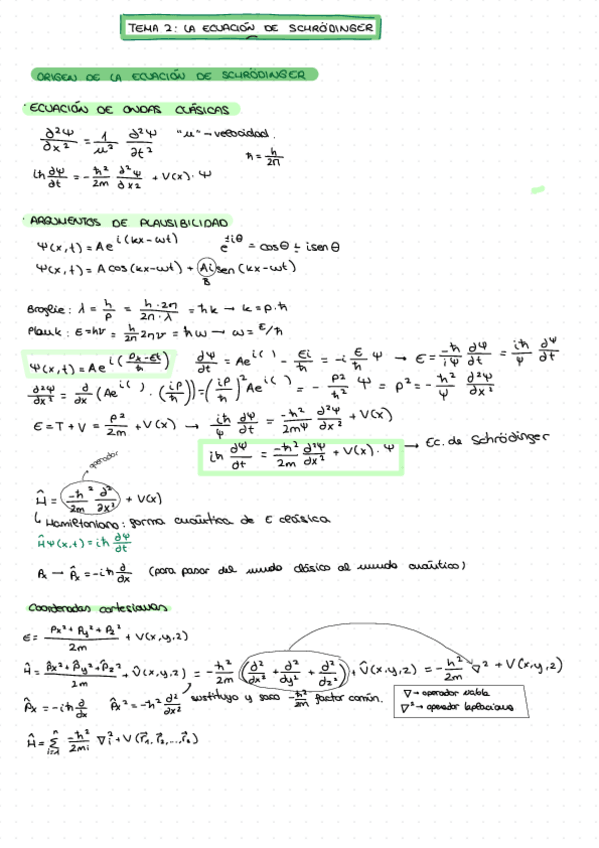 TEMA 2: LA ECUACIÓN DE SCHRÖDINGER
ORIGEN DE LA ECUACIÓN DE SCHRÖDINGER
· ECUACIÓN DE ONDAS CLÁSICAS
∂²Ψ/∂x² = 1/u² ∂²Ψ/∂t² "u" → velocidad.
ħ = h/2π
iħ ∂Ψ/∂t = -ħ²/2m ∂²Ψ/∂x² + V(x)·Ψ
· ARGUMENTOS DE PLAUSIBILIDAD
Ψ(x,t) = Ae^i(kx-ωt) e^±iθ = cosθ ± isenθ
Ψ(x,t) = A cos(kx-ωt) + Ai sen(kx-ωt)
B
Broglie: λ = h/p = h·2π/2π·λ = ħk → k = p·ħ
Plank: E=hν = h/2π 2πν = ħω → ω = E/ħ
Ψ(x,t) = Ae^i(px-Et/ħ) ∂Ψ/∂t = Ae^i( ) - Ei/ħ = -i E/ħ Ψ → E = -ħ/iΨ ∂Ψ/∂t = iħ/Ψ ∂Ψ/∂t
∂²Ψ/∂x² = ∂/∂x (Ae^i( ) · (ip/ħ)) = (ip/ħ)² Ae^i( ) = - p²/ħ² Ψ = p² = - ħ²/Ψ ∂²Ψ/∂x²
E = T + V = p²/2m + V(x) → iħ/Ψ ∂Ψ/∂t = -ħ²/2mΨ ∂²Ψ/∂x² + V(x)
iħ ∂Ψ/∂t = -ħ²/2m ∂²Ψ/∂x² + V(x)·Ψ → Ec. de Schrödinger
operador
Ĥ = -ħ²/2m ∂²/∂x² + V(x)
↳ Hamiltoniano: forma cuántica de E clásica
ĤΨ(x,t) = iħ ∂Ψ/∂t
Px → P̂x = -iħ ∂/∂x (para pasar del mundo clásico al mundo cuántico)
Coordenadas cartesianas
E = Px² + Py² + Pz²/2m + V(x,y,z)
Ĥ = P̂x² + P̂y² + P̂z²/2m + V̂(x,y,z) = -ħ²/2m (∂²/∂x² + ∂²/∂y² + ∂²/∂z²) + V̂(x,y,z) = -ħ²/2m ∇² + V(x,y,z)
P̂x = -iħ ∂/∂x P̂x² = -ħ² ∂²/∂x² sustituyo y saco -ħ²/2m factor común.
∇ → operador nabla
∇² → operador laplaciano
Ĥ = Σ -ħ²/2mi ∇i² + V(r⃗1, r⃗2, ...,)